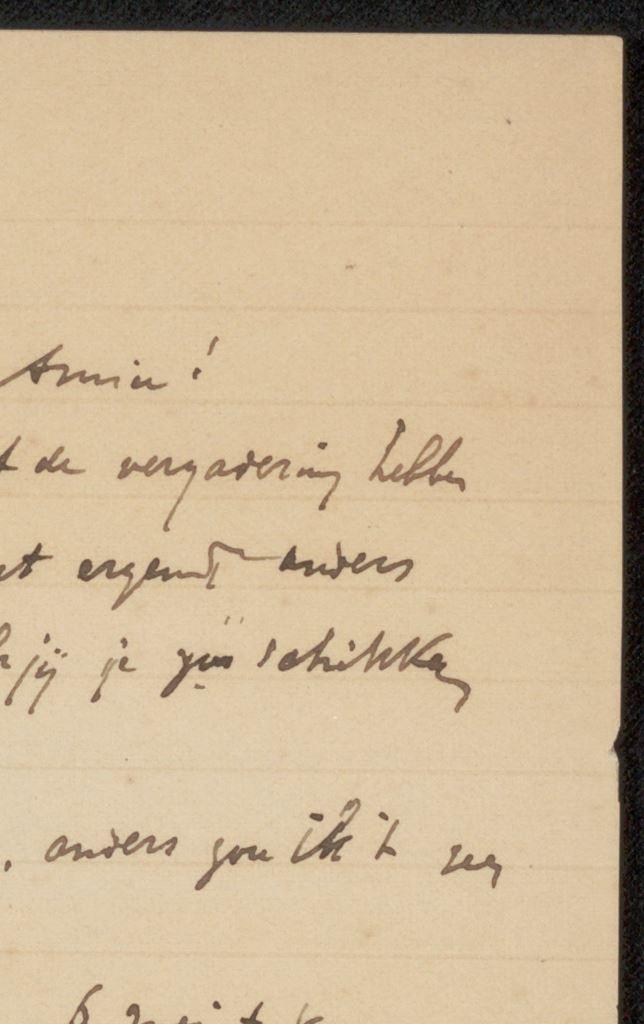 Annie!
de vergadering hebben
ergens anders
jij je schikken
, anders zou ik 't zeer